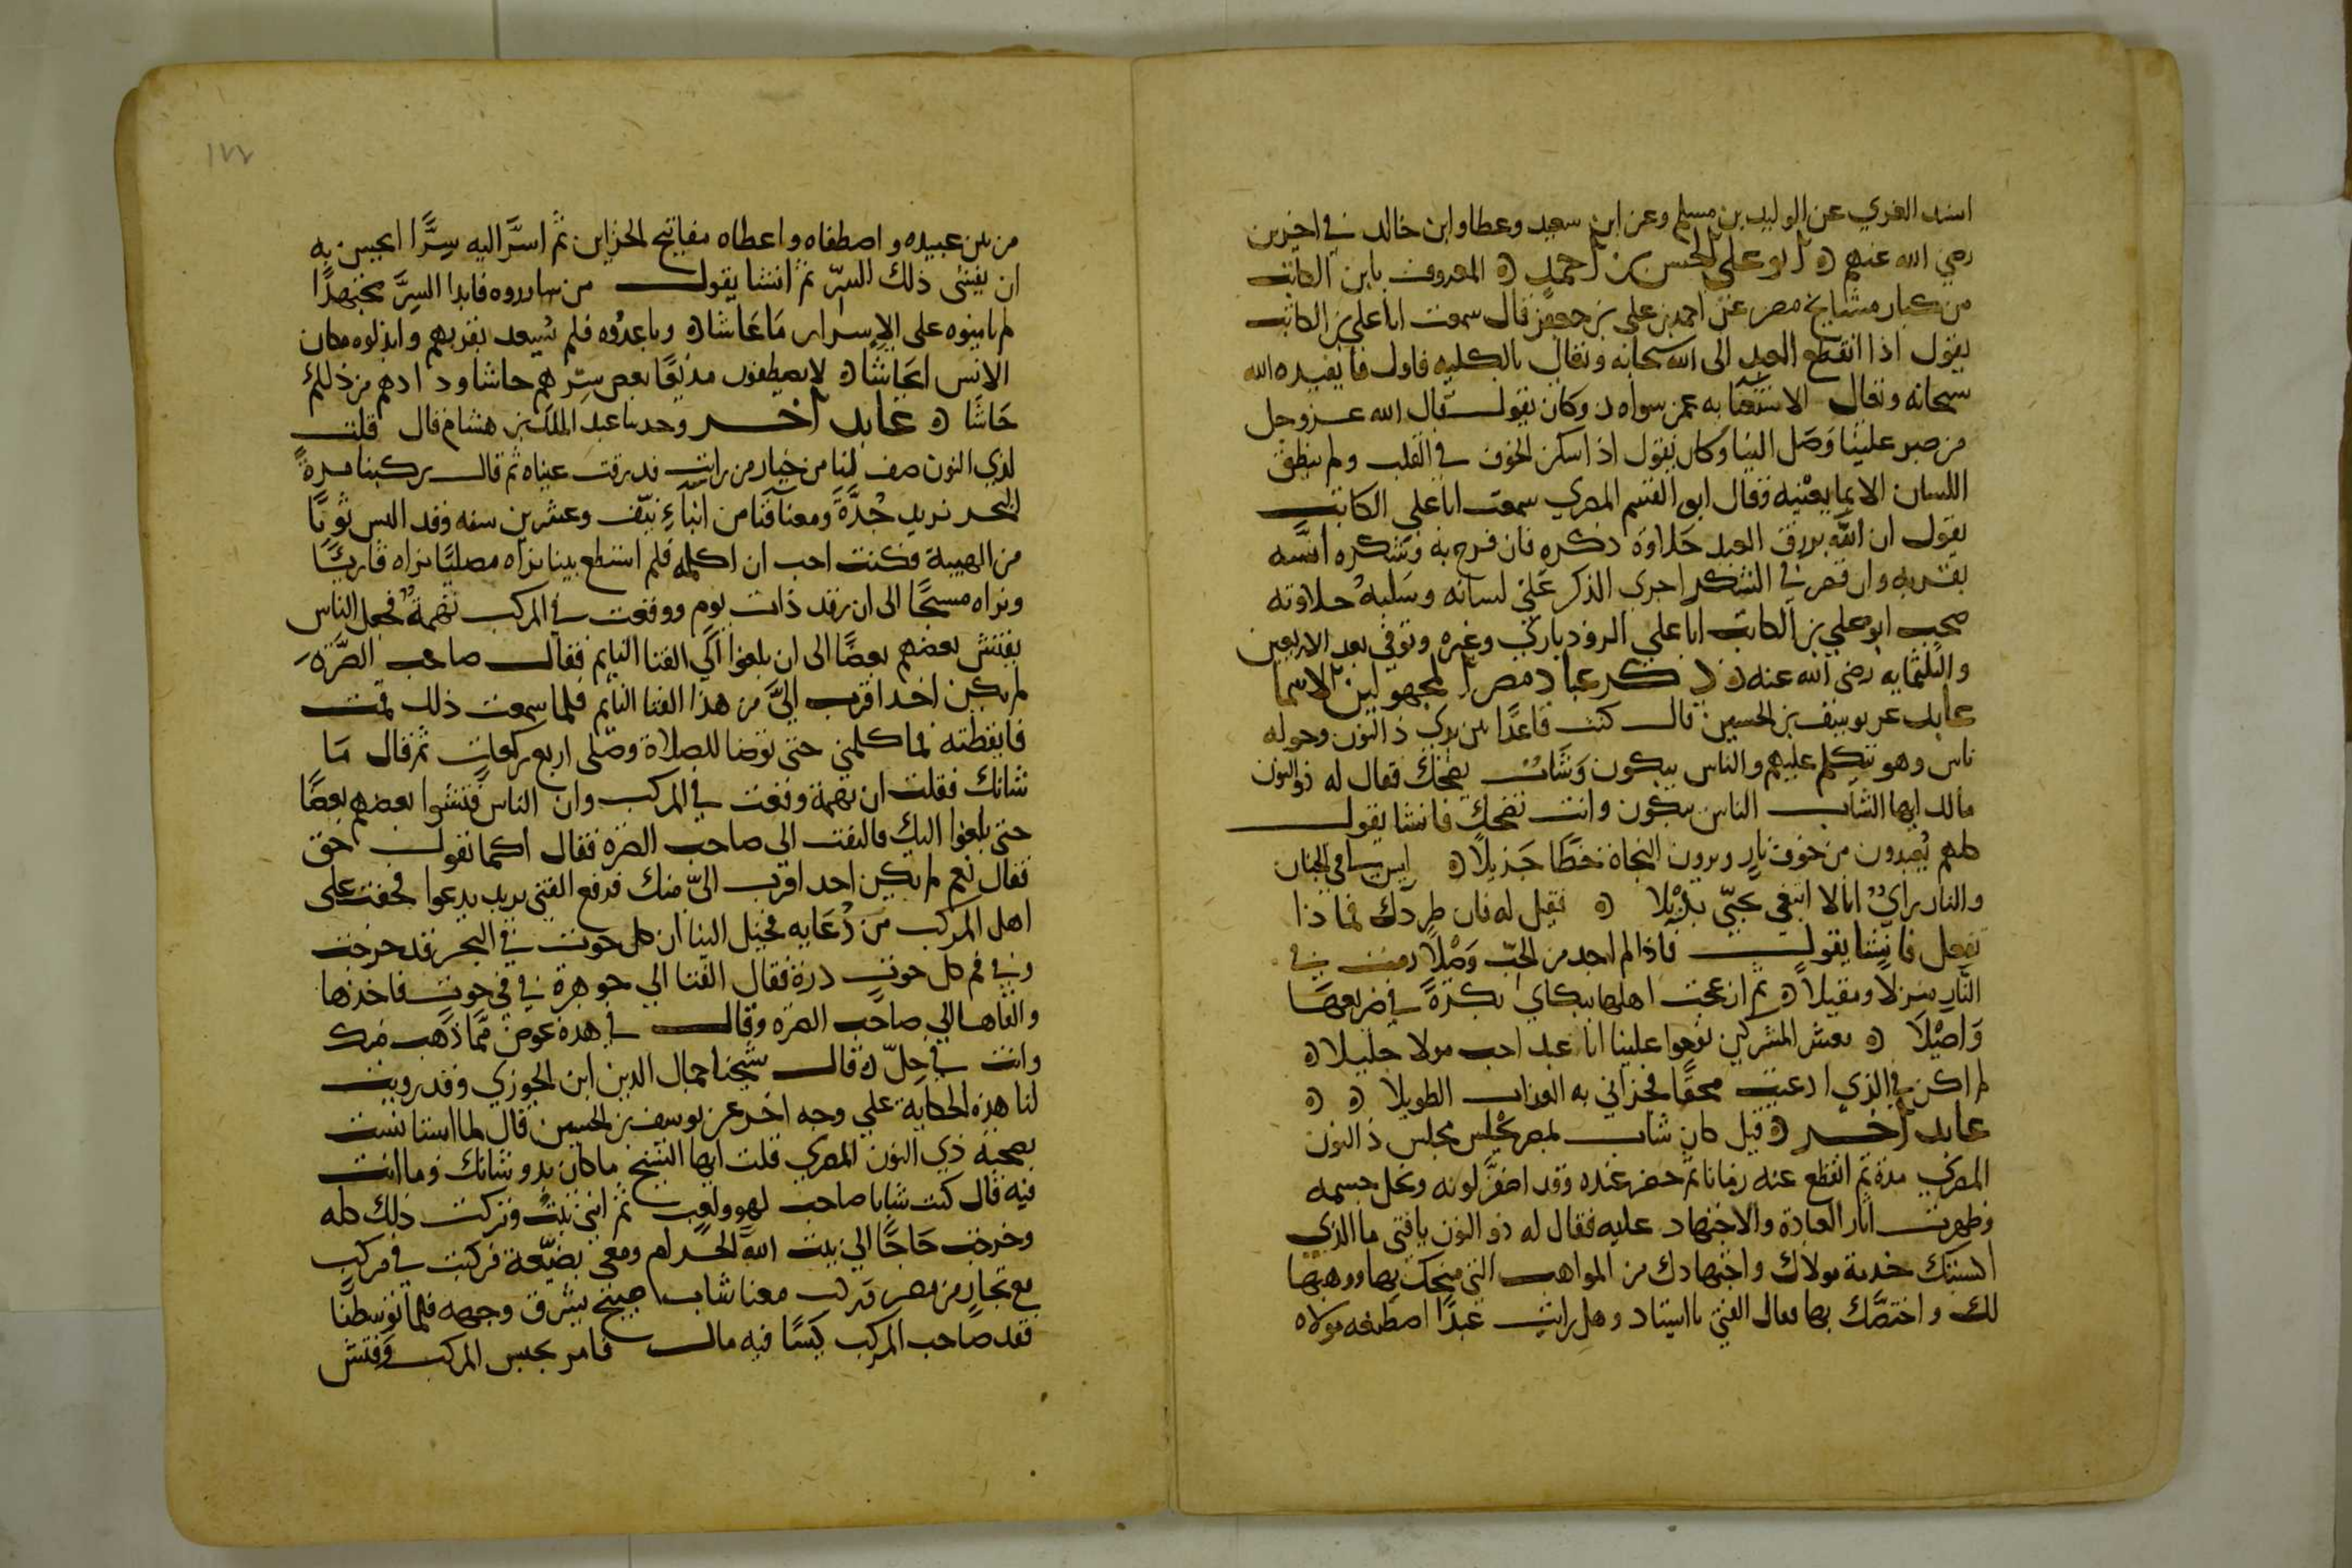 اسند الغزي عن الوليد بن مسلم وعن ابن سعيد وعطا وابن خالد في اخرين
رضي الله عنهم ابو علي الحسن بن احمد المعروف بابن الكاتب
من كبار مشايخ مصر عن احمد بن علي بن جعفر قال سمعت ابا علي بن الكاتب
يقول اذا انقطع العبد الى الله سبحانه وتعالى بالكليه فاول ما يفيده الله
سبحانه وتعالى الاستغنا به عمن سواه وكان يقول قال الله عز وجل
من صبر علينا وصل الينا وكان يقول اذا سكن الخوف في القلب ولم ينطق
اللسان الا بما يعنيه وقال ابو القسم المصري سمعت ابا علي الكاتب
يقول ان الله يرزق العبد حلاوة ذكره فان فرح به وشكره انسه
بقربه وان قصر في الشكر اجرى الذكر على لسانه وسلبه حلاوته
صحب ابو علي بن الكاتب ابا علي الروذباري وغيره وتوفي بعد الاربعين
والثلثمايه رضي الله عنه ذكر عباد مصر المجهولين الاسما
عابد عن يوسف بن الحسين قال كنت قاعدا بين يدي ذا النون وحوله
ناس وهو يتكلم عليهم والناس يبكون وشاب يضحك فقال له ذو النون
مالك ايها الشاب الناس يبكون وانت تضحك فانشا يقول
كلهم يعبدون من خوف نار ويرون النجاة حظا جزيلا ليس لي في الجنان
والنار راي انا لا ابتغي بحبي بديلا فقيل له فان طردك فماذا
تفعل فانشا يقول فاذا لم اجد من الحب وصلا رمت في
النار منزلا ومقيلا ثم ازعجت اهلها ببكاي بكرة في ضريعها
واصيلا معشر المشركين نوحوا علينا انا عبد احب مولا جليلا
لم اكن في الذي ادعيت محقا فجزاني به العذاب الطويلا
عابد اخر قيل كان شاب بمصر يجلس مجلس ذا النون
المصري مدة ثم انقطع عنه زمانا ثم حضر عنده وقد اصفر لونه ونحل جسمه
وظهرت اثار العبادة والاجتهاد عليه فقال له ذو النون يا فتى ما الذي
اكسبتك خدمة مولاك واجتهادك من المواهب التي منحك بها ووهبها
لك واختصك بها فقال الفتى يا استاد وهل رايت عبدا اصطنعه مولاه
١٧٧
من بين عبيده واصطفاه واعطاه مفاتيح الخزاين ثم اسر اليه سرا ايحسن به
ان يفشي ذلك السر ثم انشا يقول من سارروه فابدا السر مجتهدا
لم يامنوه على الاسرار ما عاشا وباعدوه فلم يسعد بقربهم وابدلوه مكان
الانس ايحاشا لا يصطفون مذيعا بعض سرهم حاشا ودادهم من ذلكم
حاشا عابد آخر وحدثنا عبد الملك بن هشام قال قلت
لذي النون صف لنا من خيار من رايت فذرفت عيناه ثم قال ركبنا مرة
البحر نريد جدة ومعنا فتا من ابناء نيف وعشرين سنه وقد البس ثوبا
من الهيبة فكنت احب ان اكلمه فلم استطع بينا نراه مصليا نراه قاريا
ونراه مسبحا الى ان رقد ذات يوم ووقعت في المركب تهمة فجعل الناس
يفتش بعضهم بعضا الى ان بلغوا الى الفتا النايم فقال صاحب الصرة
لم يكن احد اقرب الي من هذا الفتا النايم فلما سمعت ذلك قمت
فايقظته فما كلمني حتى توضا للصلاة وصلى اربع ركعات ثم قال ما
شانك فقلت ان تهمة وقعت في المركب وان الناس فتشوا بعضهم بعضا
حتى بلغوا اليك فالتفت الى صاحب الصرة فقال اكما تقول احق
فقال نعم لم يكن احد اقرب الي منك فرفع الفتى يديه يدعوا فخفت على
اهل المركب من دعايه فخيل الينا ان كل حوت في البحر قد خرجت
وفي فم كل حوت درة فقال الفتا الى جوهرة في في حوت فاخذها
والقاها الى صاحب الصرة وقال في هذه عوض مما ذهب منك
وانت في حل قال شيخنا جمال الدين ابن الجوزي وقد رويت
لنا هذه الحكاية على وجه اخر عن يوسف بن الحسين قال لما استانست
بصحبة ذي النون المصري قلت ايها الشيخ ما كان بدو شانك وما انت
فيه قال كنت شابا صاحب لهو ولعب ثم اني تبت وتركت ذلك كله
وخرجت حاجا الى بيت الله الحرام ومعي بضيعة فركبت في مركب
مع تجار من مصر وركب معنا شاب صبيح يشرق وجهه فلما توسطنا
فقد صاحب المركب كيسا فيه مال فامر بحبس المركب وفتش